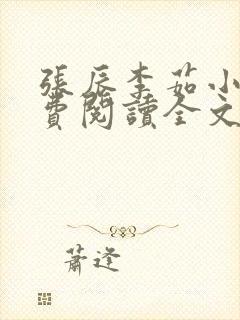 張辰李茹小
費閱讀全文
蕭逢